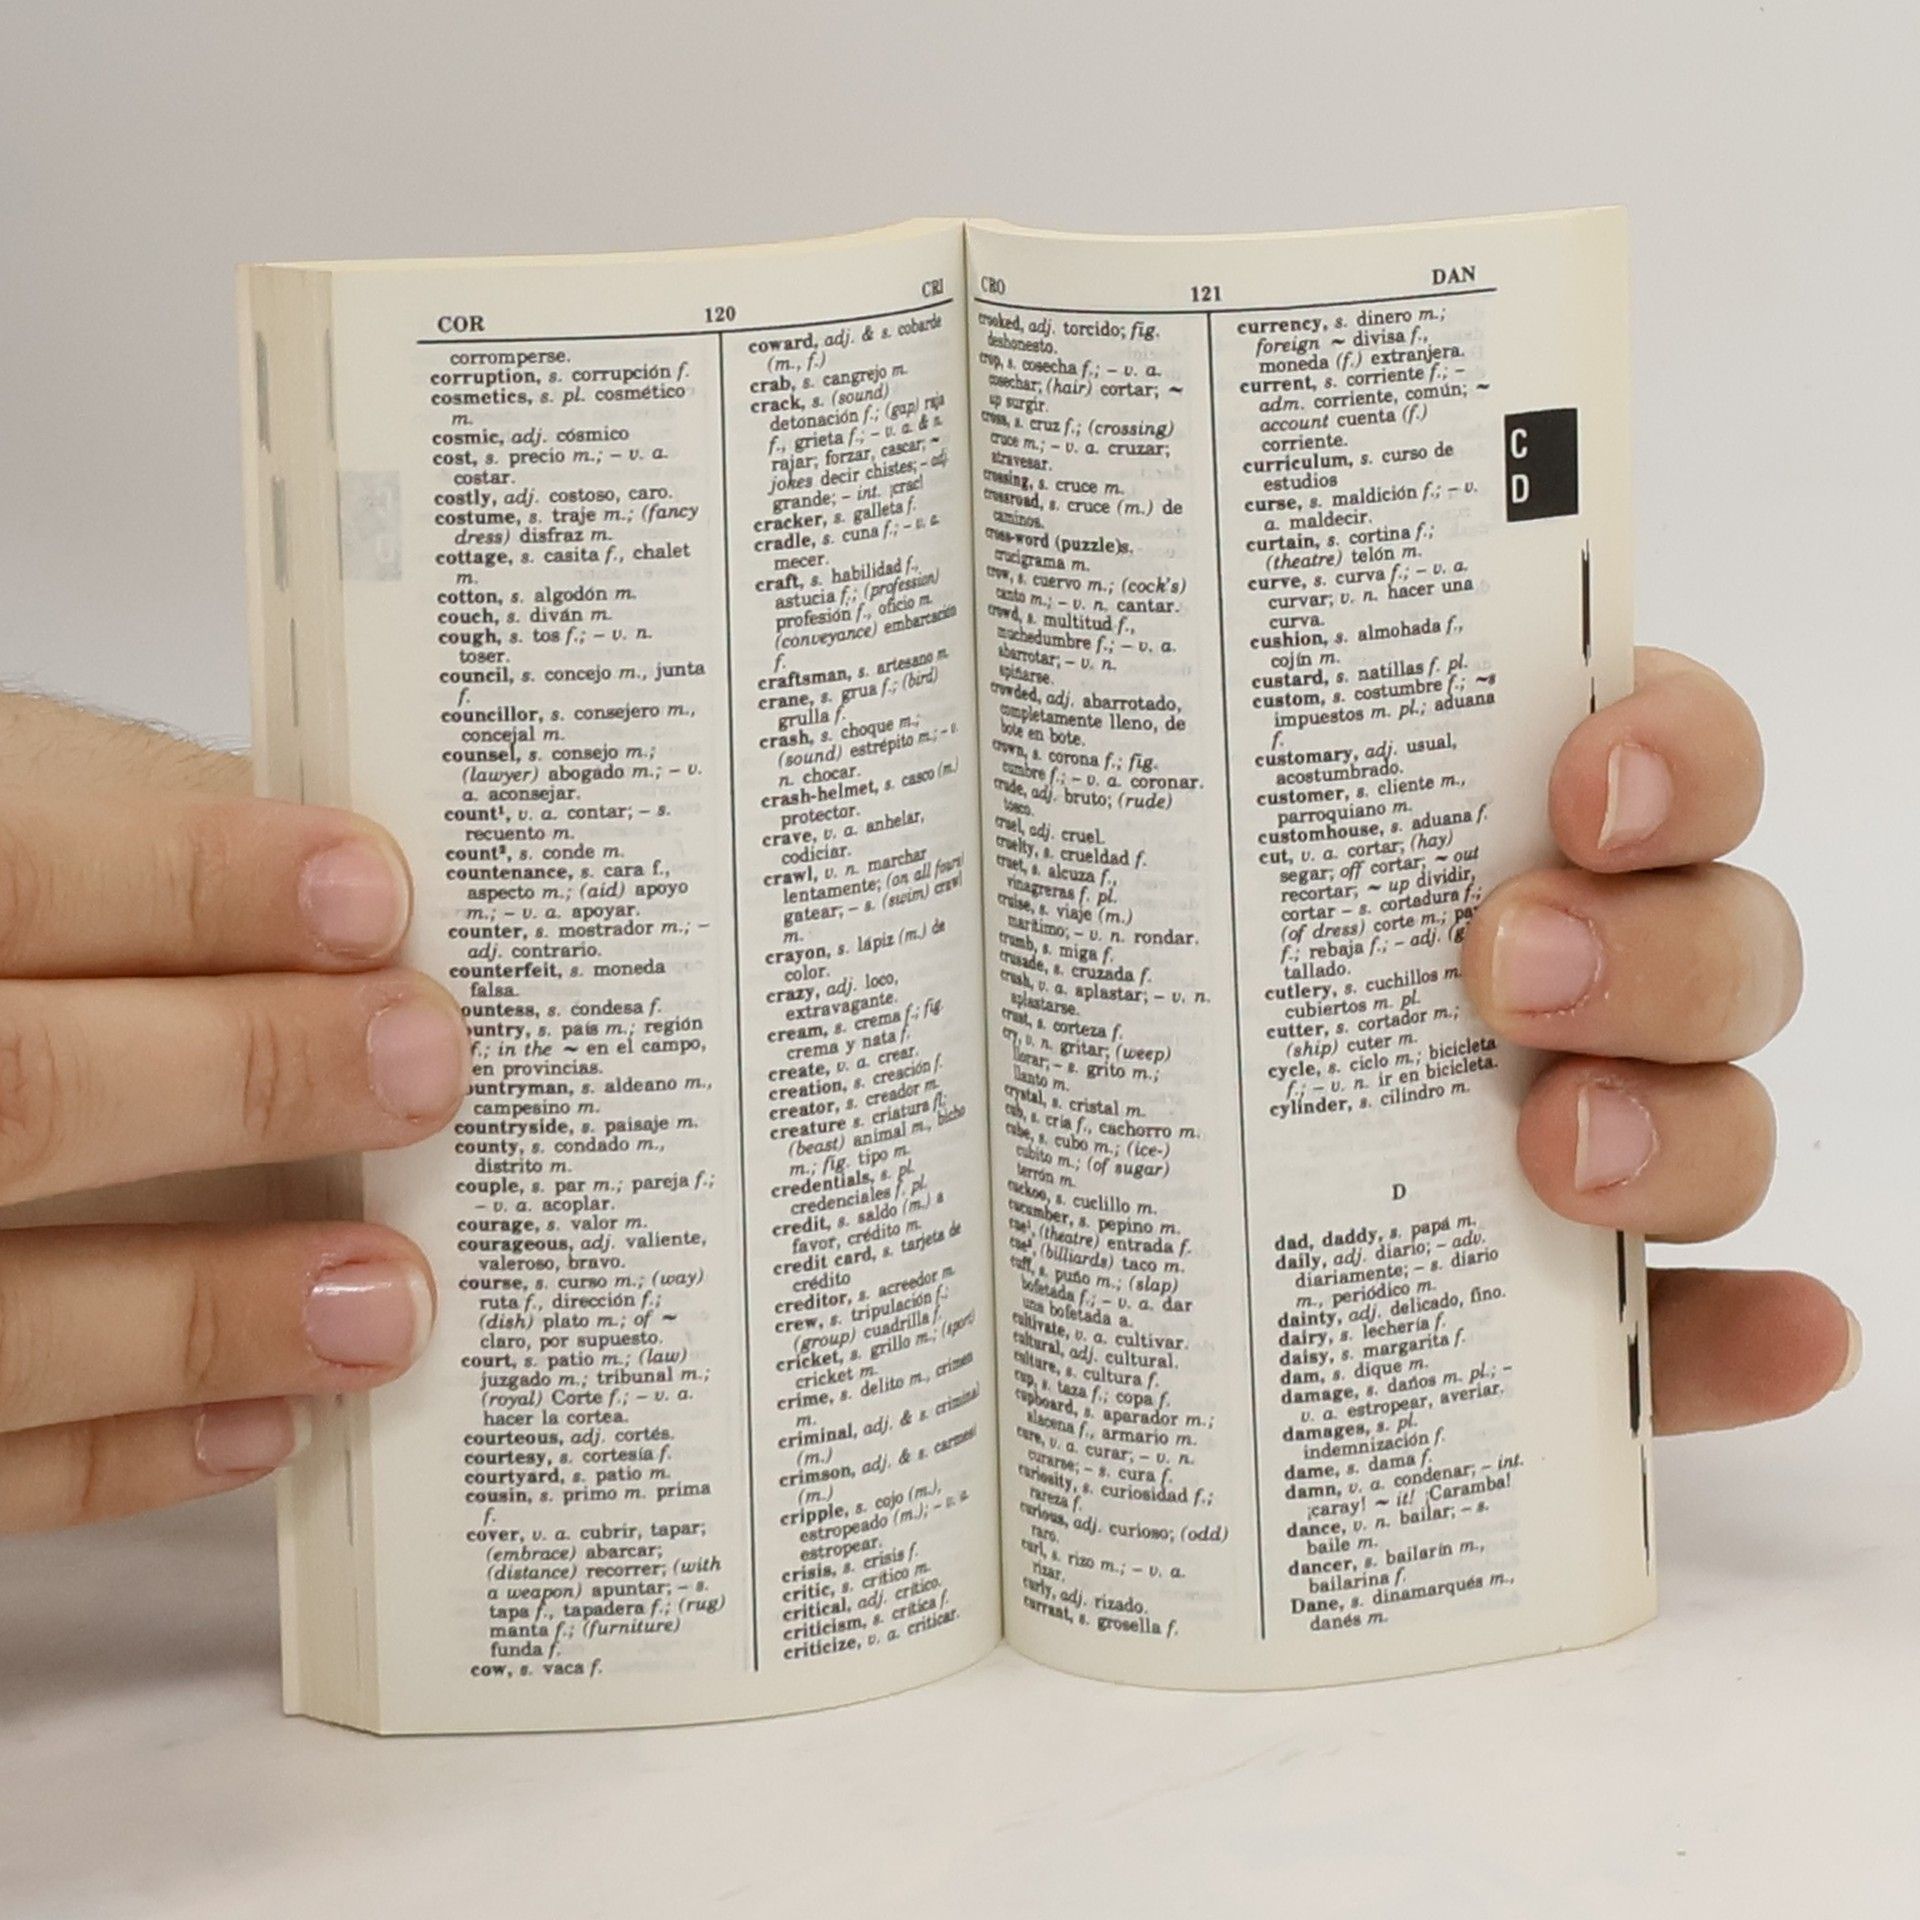 COR 120 CRI
corromperse.
corruption, s. corrupción f.
cosmetics, s. pl. cosmético
m.
cosmic, adj. cósmico
cost, s. precio m.; – v. a.
costar.
costly, adj. costoso, caro.
costume, s. traje m.; (fancy
dress) disfraz m.
cottage, s. casita f., chalet
m.
cotton, s. algodón m.
couch, s. diván m.
cough, s. tos f.; – v. n.
toser.
council, s. concejo m., junta
f.
councillor, s. consejero m.,
concejal m.
counsel, s. consejo m.;
(lawyer) abogado m.; – v.
a. aconsejar.
count¹, v. a. contar; – s.
recuento m.
count², s. conde m.
countenance, s. cara f.,
aspecto m.; (aid) apoyo
m.; – v. a. apoyar.
counter, s. mostrador m.; –
adj. contrario.
counterfeit, s. moneda
falsa.
ountess, s. condesa f.
ountry, s. país m.; región
f.; in the ~ en el campo,
en provincias.
ountryman, s. aldeano m.,
campesino m.
countryside, s. paisaje m.
county, s. condado m.,
distrito m.
couple, s. par m.; pareja f.;
– v. a. acoplar.
courage, s. valor m.
courageous, adj. valiente,
valeroso, bravo.
course, s. curso m.; (way)
ruta f., dirección f.;
(dish) plato m.; of ~
claro, por supuesto.
court, s. patio m.; (law)
juzgado m.; tribunal m.;
(royal) Corte f.; – v. a.
hacer la cortea.
courteous, adj. cortés.
courtesy, s. cortesía f.
courtyard, s. patio m.
cousin, s. primo m. prima
f.
cover, v. a. cubrir, tapar;
(embrace) abarcar;
(distance) recorrer; (with
a weapon) apuntar; – s.
tapa f., tapadera f.; (rug)
manta f.; (furniture)
funda f.
cow, s. vaca f.
coward, adj. & s. cobarde
(m., f.)
crab, s. cangrejo m.
crack, s. (sound)
detonación f.; (gap) raja
f., grieta f.; – v. a. & n.
rajar; forzar, cascar; ~
jokes decir chistes; – adj.
grande; – int. ¡crac!
cracker, s. galleta f.
cradle, s. cuna f.; – v. a.
mecer.
craft, s. habilidad f.,
astucia f.; (profession)
profesión f., oficio m.
(conveyance) embarcación
f.
craftsman, s. artesano m.
crane, s. grua f.; (bird)
grulla f.
crash, s. choque m.;
(sound) estrépito m.; – v.
n. chocar.
crash-helmet, s. casco (m.)
protector.
crave, v. a. anhelar,
codiciar.
crawl, v. n. marchar
lentamente; (on all fours)
gatear; – s. (swim) crawl
m.
crayon, s. lápiz (m.) de
color.
crazy, adj. loco,
extravagante.
cream, s. crema f.; fig.
crema y nata f.
create, v. a. crear.
creation, s. creación f.
creator, s. creador m.
creature s. criatura f.;
(beast) animal m., bicho
m.; fig. tipo m.
credentials, s. pl.
credenciales f. pl.
credit, s. saldo (m.) a
favor, crédito m.
credit card, s. tarjeta de
crédito
creditor, s. acreedor m.
crew, s. tripulación f.;
(group) cuadrilla f.
cricket, s. grillo m.; (sport)
cricket m.
crime, s. delito m., crimen
m.
criminal, adj. & s. criminal
(m.)
crimson, adj. & s. carmesí
(m.)
cripple, s. cojo (m.),
estropeado (m.); – v. a.
estropear.
crisis, s. crisis f.
critic, s. crítico m.
critical, adj. crítico.
criticism, s. crítica f.
criticize, v. a. criticar.
CRO 121 DAN
crooked, adj. torcido; fig.
deshonesto.
crop, s. cosecha f.; – v. a.
cosechar; (hair) cortar; ~
up surgir.
cross, s. cruz f.; (crossing)
cruce m.; – v. a. cruzar;
atravesar.
crossing, s. cruce m.
crossroad, s. cruce (m.) de
caminos.
cross-word (puzzle)s.
crucigrama m.
crow, s. cuervo m.; (cock's)
canto m.; – v. n. cantar.
crowd, s. multitud f.,
muchedumbre f.; – v. a.
abarrotar; – v. n.
apiñarse.
crowded, adj. abarrotado,
completamente lleno, de
bote en bote.
crown, s. corona f.; fig.
cumbre f.; – v. a. coronar.
crude, adj. bruto; (rude)
tosco.
cruel, adj. cruel.
cruelty, s. crueldad f.
cruet, s. alcuza f.,
vinagreras f. pl.
cruise, s. viaje (m.)
marítimo; – v. n. rondar.
crumb, s. miga f.
crusade, s. cruzada f.
crush, v. a. aplastar; – v. n.
aplastarse.
crust, s. corteza f.
cry, v. n. gritar; (weep)
llorar; – s. grito m.;
llanto m.
crystal, s. cristal m.
cub, s. cría f., cachorro m.
cube, s. cubo m.; (ice-)
cubito m.; (of sugar)
terrón m.
cuckoo, s. cuclillo m.
cucumber, s. pepino m.
cue¹, (theatre) entrada f.
cue², (billiards) taco m.
cuff, s. puño m.; (slap)
bofetada f.; – v. a. dar
una bofetada a.
cultivate, v. a. cultivar.
cultural, adj. cultural.
culture, s. cultura f.
cup, s. taza f.; copa f.
cupboard, s. aparador m.;
alacena f., armario m.
cure, v. a. curar; – v. n.
curarse; – s. cura f.
curiosity, s. curiosidad f.;
rareza f.
curious, adj. curioso; (odd)
raro.
curl, s. rizo m.; – v. a.
rizar.
curly, adj. rizado.
currant, s. grosella f.
currency, s. dinero m.;
foreign ~ divisa f.,
moneda (f.) extranjera.
current, s. corriente f.; –
adm. corriente, común; ~
account cuenta (f.)
corriente.
curriculum, s. curso de
estudios
curse, s. maldición f.; – v.
a. maldecir.
curtain, s. cortina f.;
(theatre) telón m.
curve, s. curva f.; – v. a.
curvar; v. n. hacer una
curva.
cushion, s. almohada f.,
cojín m.
custard, s. natillas f. pl.
custom, s. costumbre f.; ~s
impuestos m. pl.; aduana
f.
customary, adj. usual,
acostumbrado.
customer, s. cliente m.,
parroquiano m.
customhouse, s. aduana f.
cut, v. a. cortar; (hay)
segar; off cortar; ~ out
recortar; ~ up dividir,
cortar – s. cortadura f.;
(of dress) corte m.;
f.; rebaja f.; – adj.
tallado.
cutlery, s. cuchillos m.
cubiertos m. pl.
cutter, s. cortador m.;
(ship) cuter m.
cycle, s. ciclo m.; bicicleta
f.; – v. n. ir en bicicleta.
cylinder, s. cilindro m.
D
dad, daddy, s. papá m.
daily, adj. diario; – adv.
diariamente; – s. diario
m., periódico m.
dainty, adj. delicado, fino.
dairy, s. lechería f.
daisy, s. margarita f.
dam, s. dique m.
damage, s. daños m. pl.; –
v. a. estropear, averiar.
damages, s. pl.
indemnización f.
dame, s. dama f.
damn, v. a. condenar; – int.
¡caray! ~ it! ¡Caramba!
dance, v. n. bailar; – s.
baile m.
dancer, s. bailarín m.,
bailarina f.
Dane, s. dinamarqués m.,
danés m.
C
D